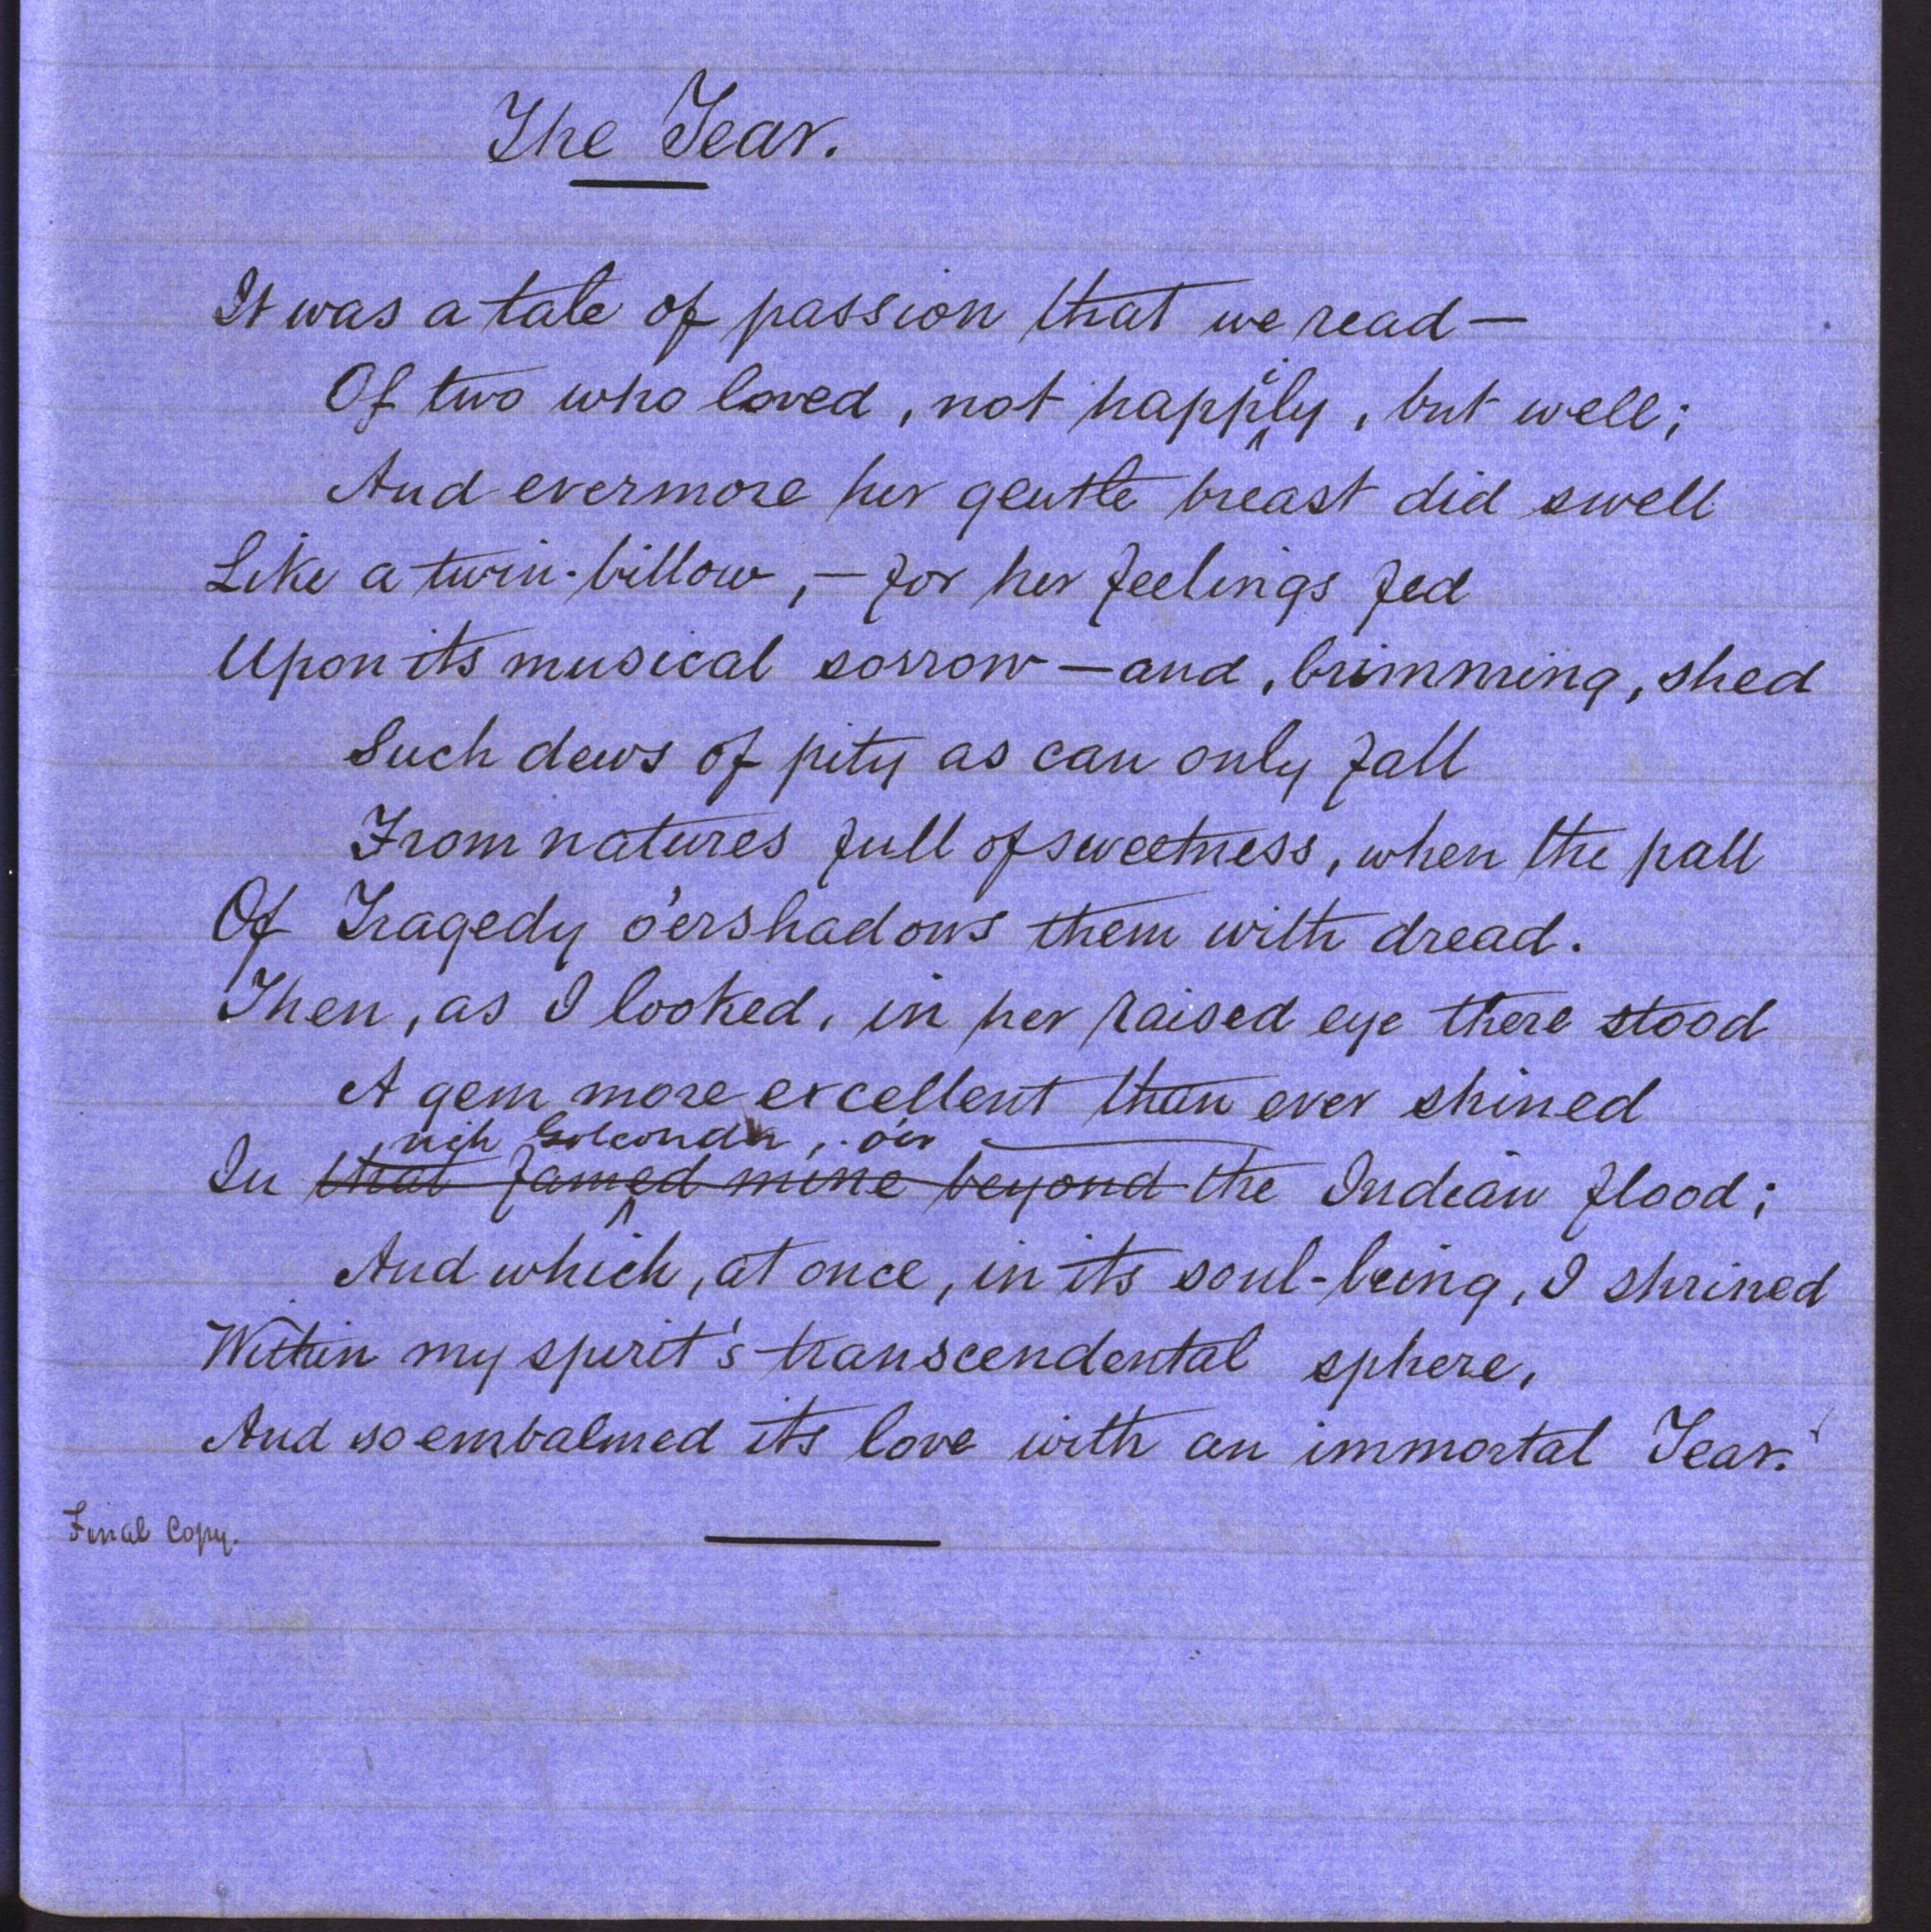 The Tear.
It was a tale of passion that we read—
Of two who loved, not happily, but well;
And evermore her gentle breast did swell
Like a twin-billow,—for her feelings fed
Upon its musical sorrow—and, brimming, shed
Such dews of pity as can only fall
From natures full of sweetness, when the pall
Of Tragedy o'ershadows them with dread.
Then, as I looked, in her raised eye there stood
A gem more excellent than ever shined
rich Golconda, o'er
In that famed mine beyond the Indian flood;
And which, at once, in its soul-being, I shrined
Within my spirit's transcendental sphere,
And so embalmed its love with an immortal Tear.
Final Copy.